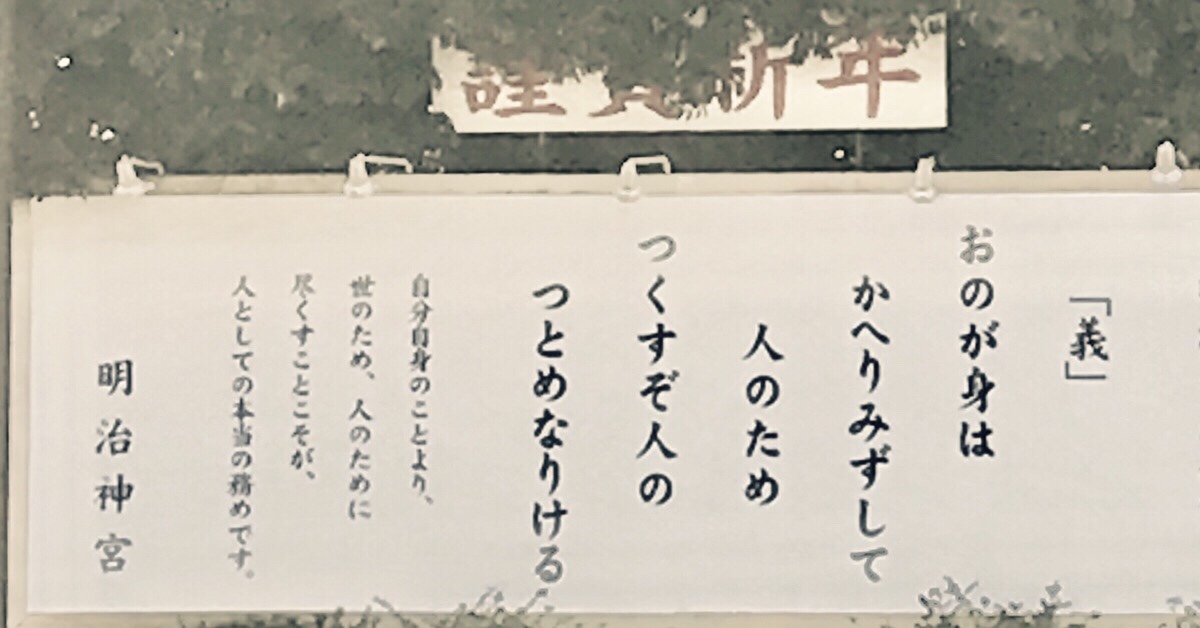 謹賀新年
「義」
おのが身は
かへりみずして
人のため
つくすぞ人の
つとめなりける
自分自身のことより、
世のため、人のために
尽くすことこそが、
人としての本当の務めです。
明治神宮